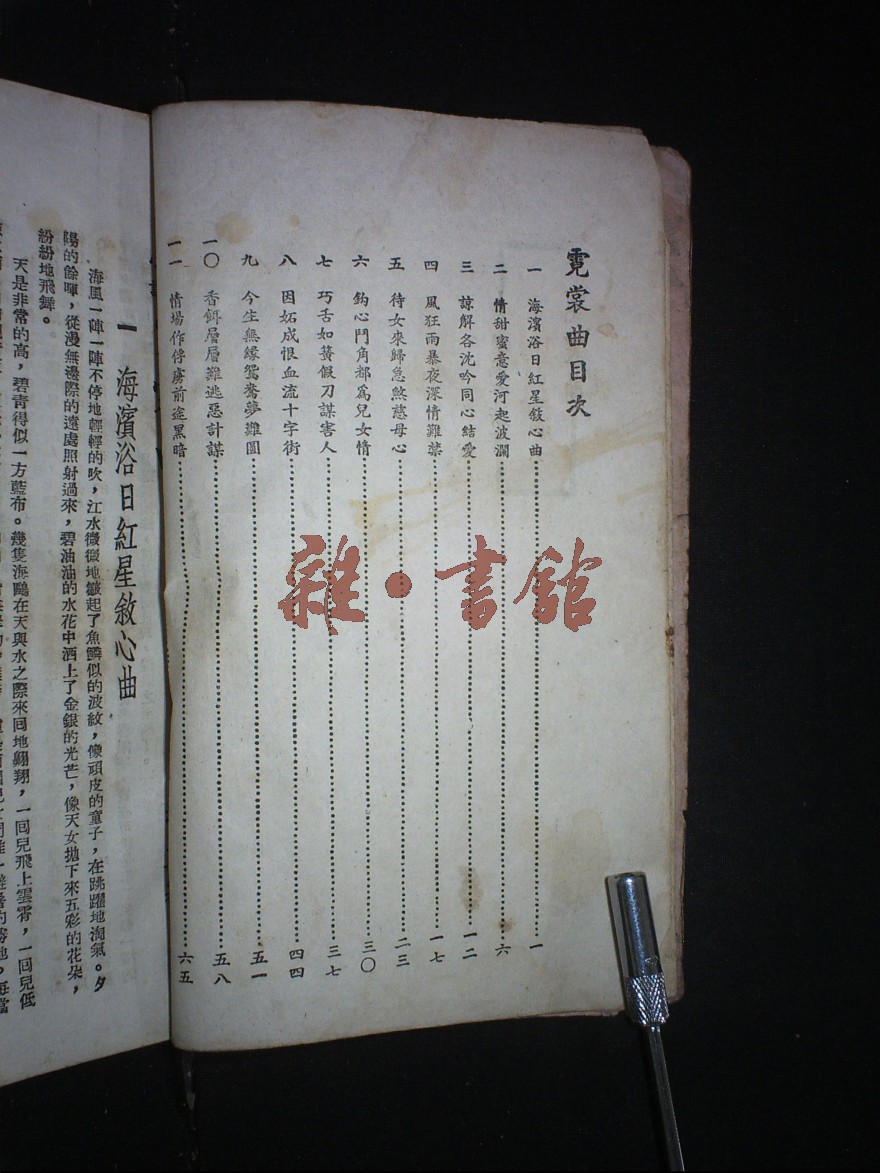 霓裳曲目次
一 海濱浴日紅星敘心曲………一
二 情甜蜜意愛河起波瀾………六
三 諒解各沈吟同心結愛………一二
四 風狂雨暴夜深情難禁………一七
五 待女來歸急煞慈母心………二三
六 鈎心鬥角都爲兒女情………三〇
七 巧舌如簧假刀謀害人………三七
八 因妬成恨血流十字街………四四
九 今生無緣鴛鴦夢難圓………五一
一〇 香餌層層難逃惡計謀………五八
一一 情場作俘虜前途黑暗………六五
雜·書館
一 海濱浴日紅星敘心曲
海風一陣一陣不停地輕輕的吹，江水微微地皺起了魚鱗似的波紋，像頑皮的童子，在跳躍地淘氣。夕
陽的餘暉，從漫無邊際的遠處照射過來，碧油油的水花中洒上了金銀的光芒，像天女拋下來五彩的花朵，
紛紛地飛舞。
天是非常的高，碧青得似一方藍布。幾隻海鷗在天與水之際來囘地翱翔，一囘兒飛上雲霄，一囘兒低